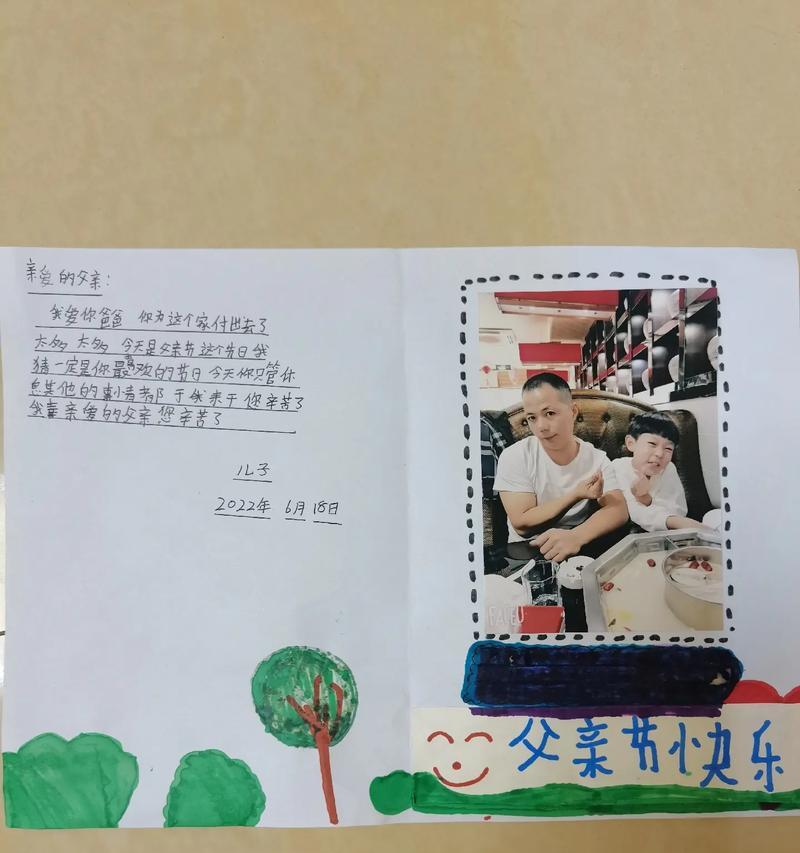 亲爱的父亲:
我爱你爸爸 你为这个家付出去了
太多 太多 今天是父亲节这个节日我
猜一定是你最喜欢的节日 今天你只管休
息其他的事情都于我来于您辛苦了
我亲爱的父亲您辛苦了
儿子
2022年 6月 18日
FACEU
父亲节快乐